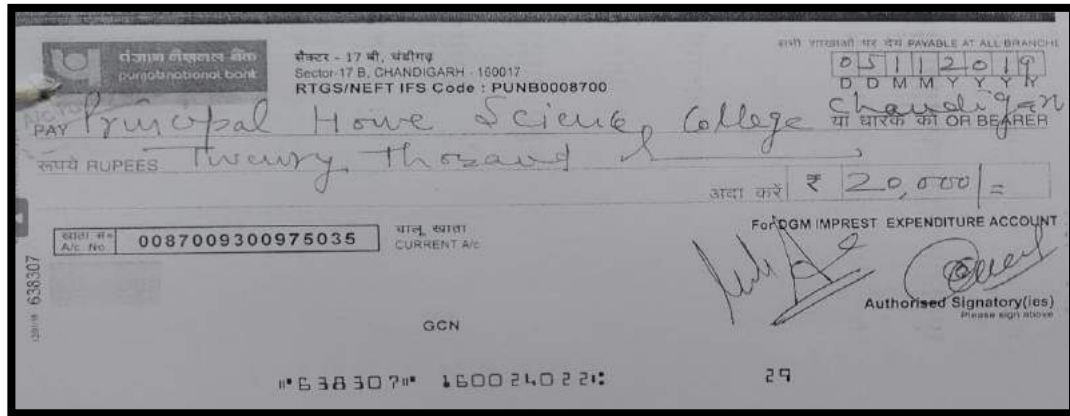 सभी शाखाओं पर देय PAYABLE AT ALL BRANCHE
पंजाब नैशनल बैंक
punjab national bank
सैक्टर - 17 बी, चंडीगढ़
Sector-17 B, CHANDIGARH - 160017
RTGS/NEFT IFS Code : PUNB0008700
05112019
D D M M Y Y Y Y
PAY Principal Home Science College Chandigarh या धारक को OR BEARER
रूपये RUPEES Twenty Thosand
अदा करें ₹ 20,000/=
खाता सं० A/c. No. 0087009300975035 चालू खाता CURRENT A/c
For DGM IMPREST EXPENDITURE ACCOUNT
Authorised Signatory(ies)
Please sign above
638307
GCN
⑈638307⑈ 160024022⑆ 29